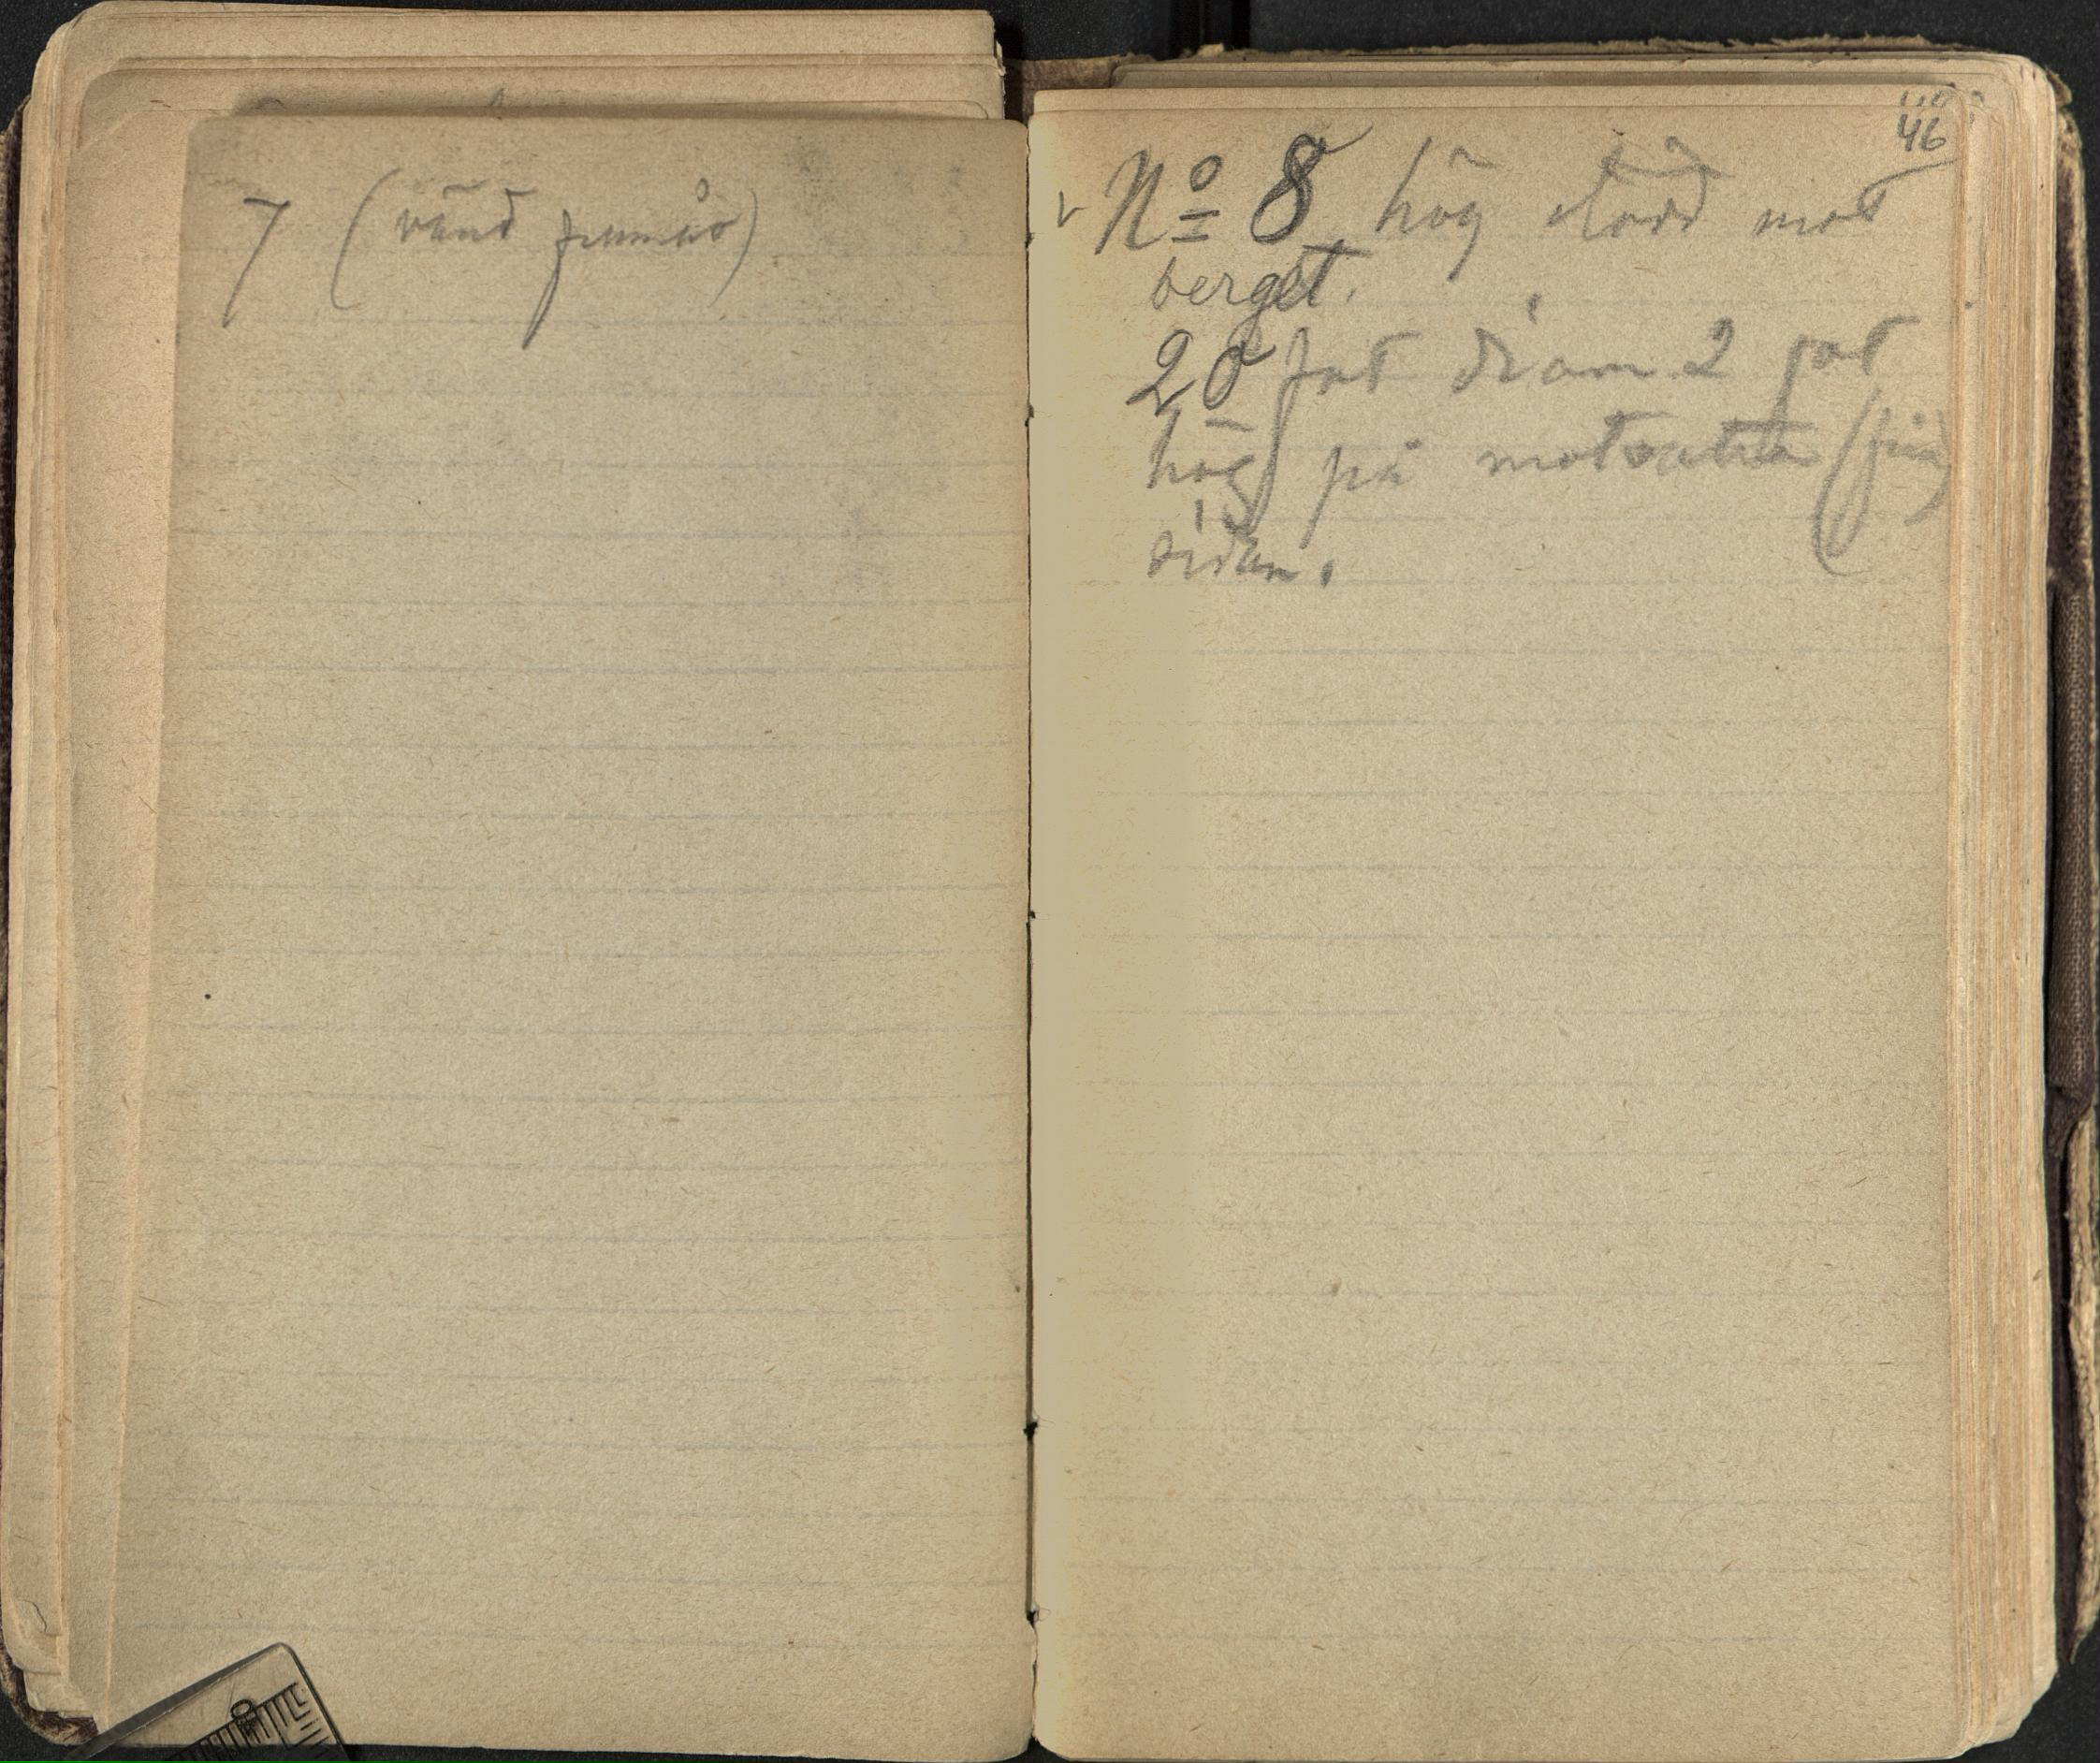 7 (vänd
46
Nº 8 hög stödd mot
berget.
20 fot diam 2 fot
hög på motsatta
sidan.